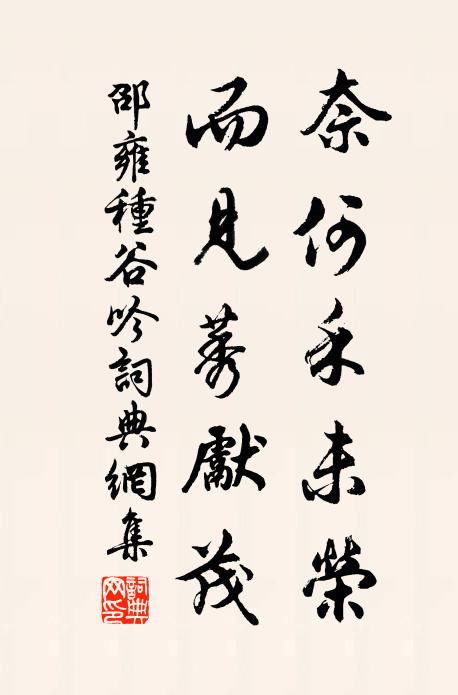 奈何禾未榮
而見莠獻茂
邵雍種谷吟詞典網集
詞典網印